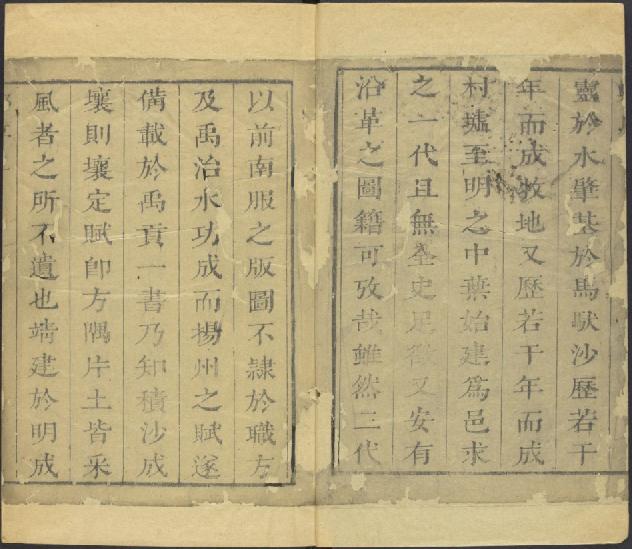 靈於水肇基於馬䭾沙歷若干
年而成牧地又歷若干年而成
村墟至明之中葉始建為邑求
之一代且無全史足徵又安有
沿革之圖籍可攷哉雖然三代
以前南服之版圖不隸於職方
及禹治水功成而揚州之賦遂
備載於禹貢一書乃知積沙成
壤則壤定賦卽方隅片土皆采
風者之所不遺也靖建於明成